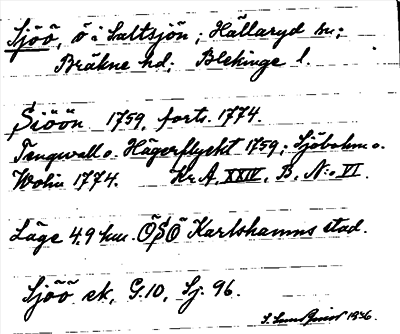 Sjöö, ö i Saltsjön; Hällaryd sn;
Bräkne hd; Blekinge l.
Siöön 1759, forts. 1774.
Tengwall o. Hägerflycht 1759; Sjöbohm o.
Wolin 1774. Kr. A. XXIV, B. N:o VI.
Läge 4,9 km. ÖSÖ Karlshamns stad.
Sjöö ek. G.10, Sj. 96.
1936.